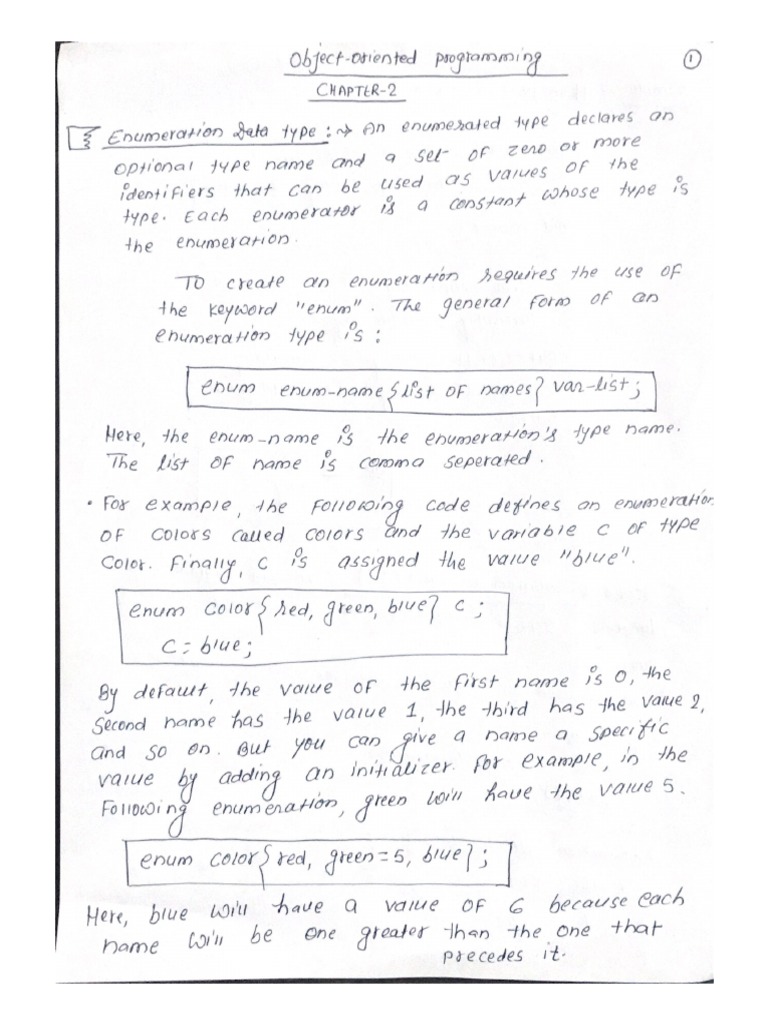 Object-oriented programming
1
CHAPTER-2
Enumeration Data type :→ An enumerated type declares an
optional type name and a set of zero or more
identifiers that can be used as values of the
type. Each enumerator is a constant whose type is
the enumeration.
To create an enumeration requires the use of
the keyword "enum". The general form of an
enumeration type is :
enum enum-name{list of names} var-list;
Here, the enum-name is the enumeration's type name.
The list of name is comma seperated.
• For example, the following code defines an enumeration
of colors called colors and the variable c of type
color. Finally, c is assigned the value "blue".
enum color{red, green, blue} c;
c = blue;
By default, the value of the first name is 0, the
second name has the value 1, the third has the value 2,
and so on. But you can give a name a specific
value by adding an initializer. For example, in the
following enumeration, green will have the value 5.
enum color{red, green=5, blue};
Here, blue will have a value of 6 because each
name will be one greater than the one that
precedes it.